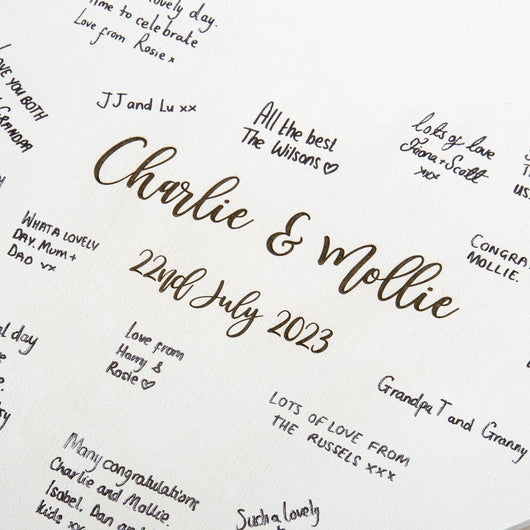 ovely day.
time to celebrate
Love from Rosie x
LOVE YOU BOTH
GRANDPA
JJ and Lu xx
All the best
The Wilsons ♡
Lots of love
Fiona + Scott
xxx
Charlie & Mollie
22nd July 2023
CONGRA
MOLLIE.
WHAT A LOVELY
DAY. MUM +
DAD xx
day
Love from
Harry &
Rosie ♡
Grandpa T and Granny
LOTS OF LOVE FROM
THE RUSSELS xxx
Many congratulations
Charlie and Mollie.
Isabel, Dan and
kids xx
Such a lovely